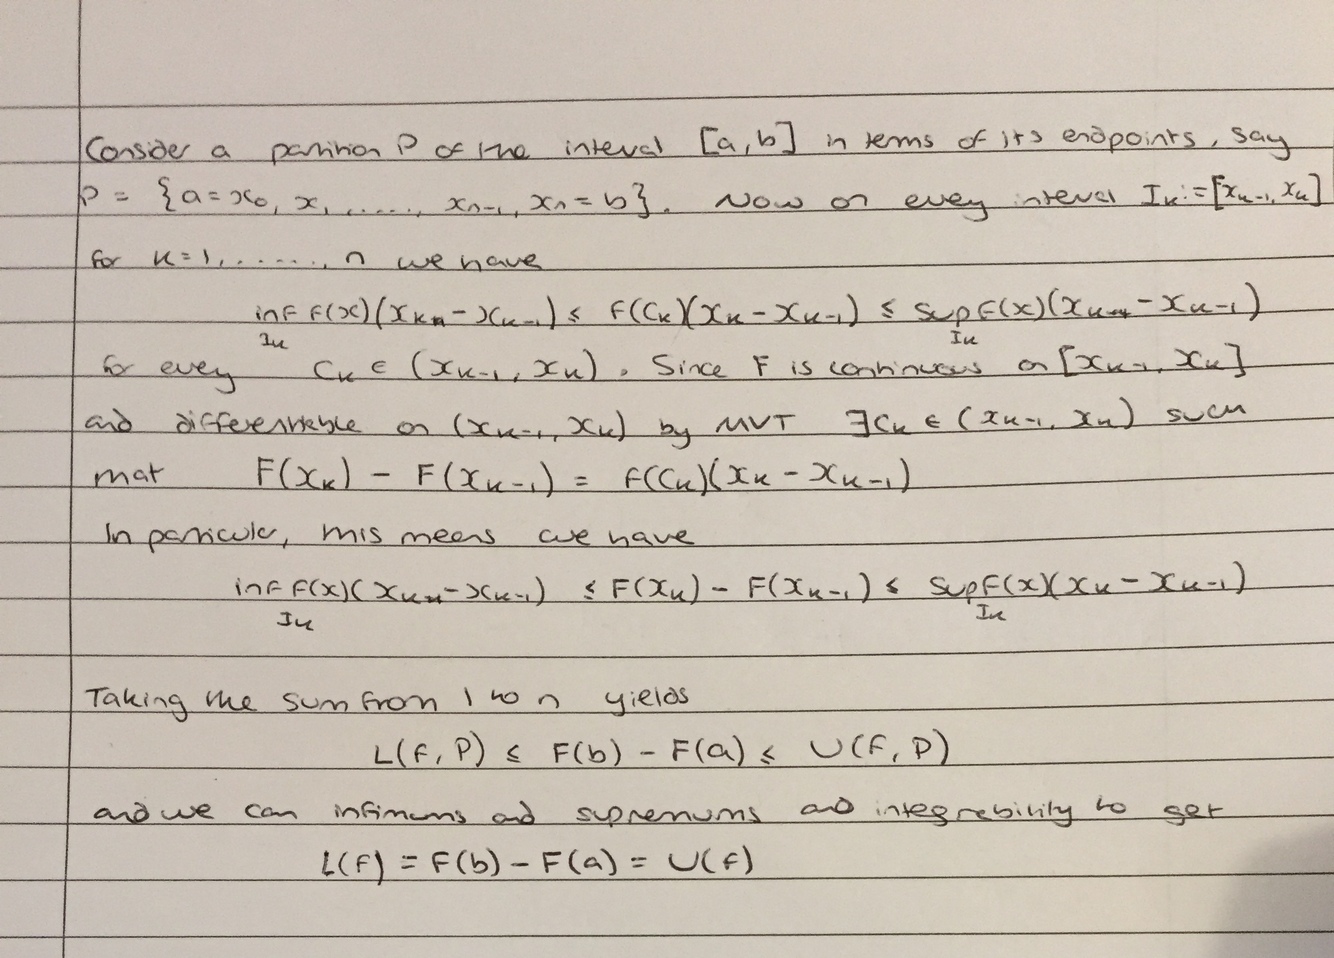 Consider a partition P of the interval [a,b] in terms of its endpoints, say
P = {a=x₀, x₁, ....., xₙ₋₁, xₙ=b}. Now on every interval Iₖ:=[xₖ₋₁, xₖ]
for k=1,......, n we have
inf f(x)(xₖ - xₖ₋₁) ≤ f(cₖ)(xₖ - xₖ₋₁) ≤ sup f(x)(xₖ - xₖ₋₁)
Iₖ Iₖ
for every cₖ ∈ (xₖ₋₁, xₖ). Since F is continuous on [xₖ₋₁, xₖ]
and differentiable on (xₖ₋₁, xₖ) by MVT ∃cₖ ∈ (xₖ₋₁, xₖ) such
that F(xₖ) - F(xₖ₋₁) = f(cₖ)(xₖ - xₖ₋₁)
In particular, this means we have
inf f(x)(xₖ - xₖ₋₁) ≤ F(xₖ) - F(xₖ₋₁) ≤ sup f(x)(xₖ - xₖ₋₁)
Iₖ Iₖ
Taking the sum from 1 to n yields
L(f, P) ≤ F(b) - F(a) ≤ U(f, P)
and we can infimums and supremums and integrability to get
L(f) = F(b) - F(a) = U(f)